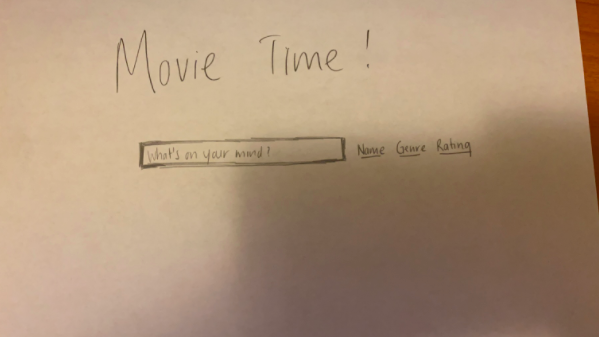 Movie Time!
What's on your mind? Name Genre Rating